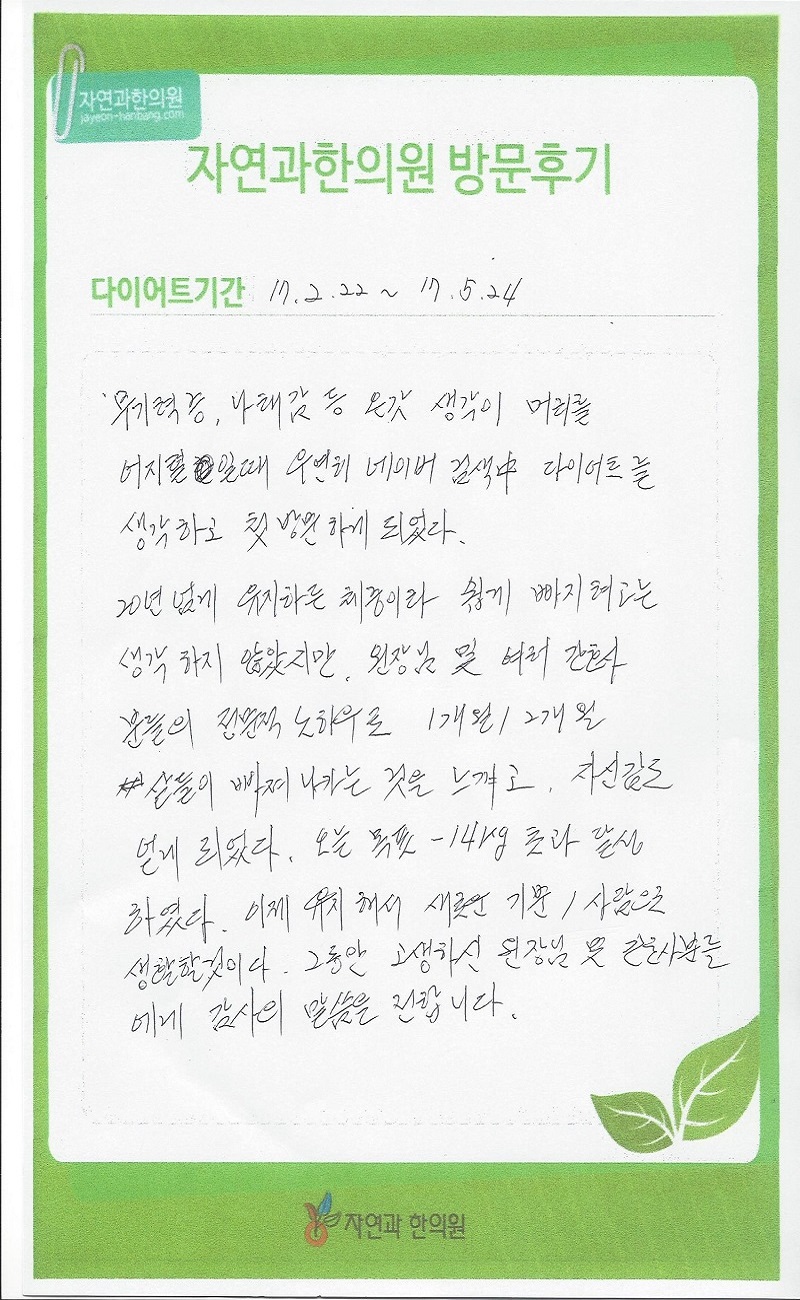 자연과한의원
jayeon-hanbang.com
자연과한의원 방문후기
다이어트기간 17.2.22 ~ 17.5.24
무기력증, 나태감 등 온갖 생각이 머리를
어지럽 일때 우연히 네이버 검색中 다이어트를
생각하고 첫 방문하게 되었다.
20년 넘게 유지하는 체중이라 쉽게 빠지려고는
생각하지 않았지만, 원장님 및 여러 간호사
분들의 전문적 노하우로 1개월/2개월
살들이 빠져 나가는 것을 느끼고, 자신감도
얻게 되었다. 오늘 목표 -14kg 초과 달성
하였다. 이제 유지해서 새로운 기분/사람으로
생활할것이다. 그동안 고생하신 원장님 및 간호사분들
에게 감사의 말씀을 전합니다.
자연과 한의원